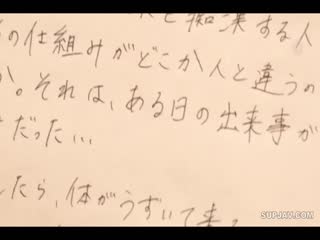 と痴漢する人
の仕組みがどこか人と違うの
か。それは、ある日の出来事が
だった...
したら、体がうずいて来
SUPJAV.COM